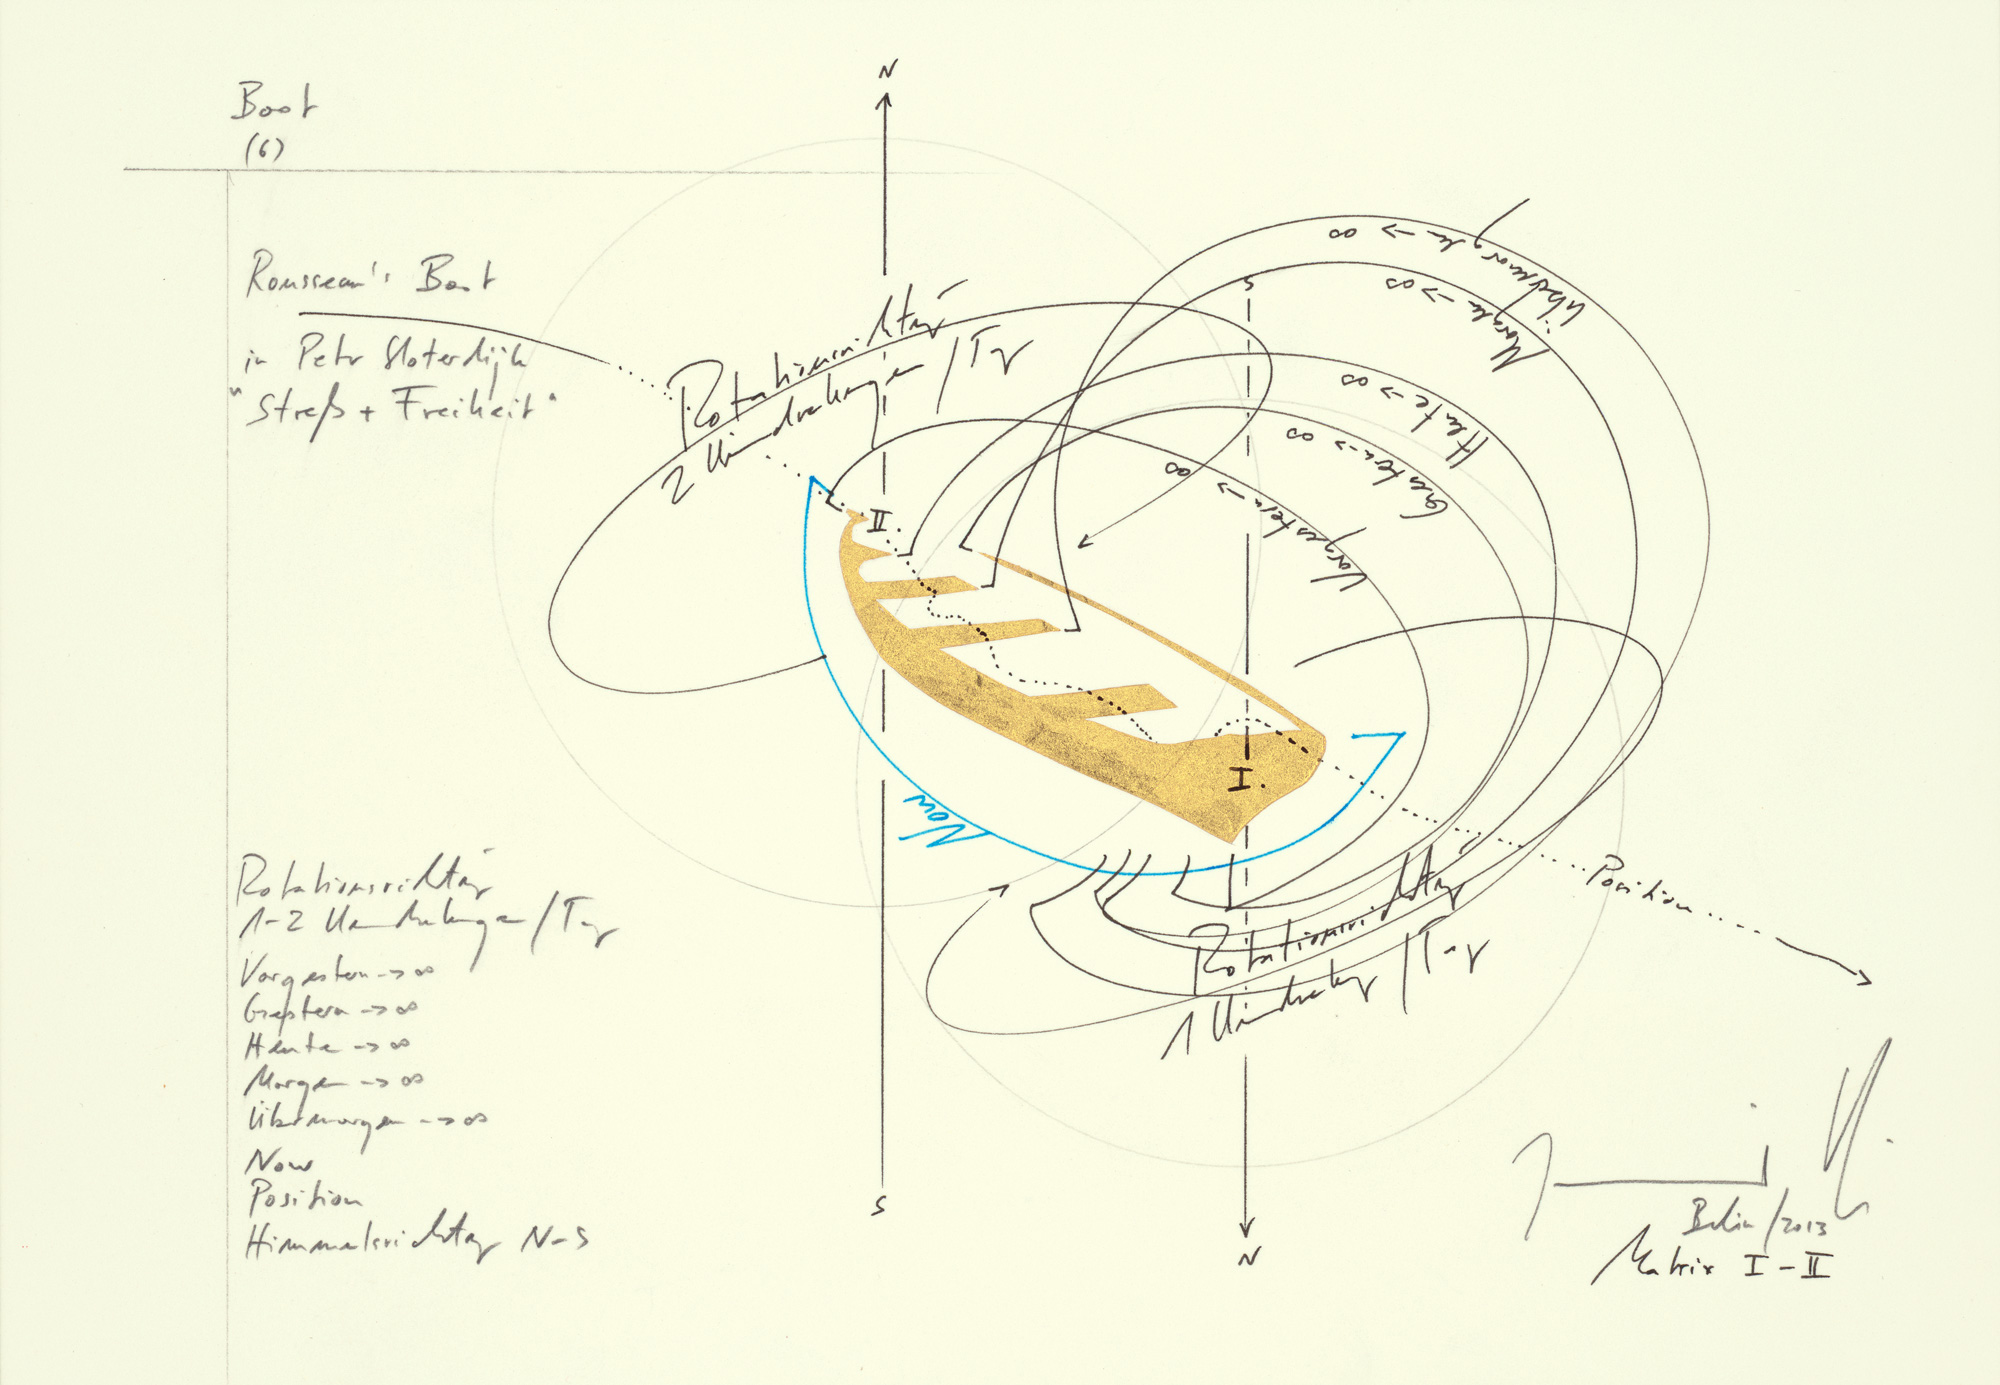 Boot
(6)
Rousseau's Boot
in Peter Sloterdijk
"Streß + Freiheit"
Rotationsrichtung
1-2 Umdrehungen/Tag
Vorgestern → ∞
Gestern → ∞
Heute → ∞
Morgen → ∞
Übermorgen → ∞
Now
Position
Himmelsrichtung N-S
N
S
Rotationsrichtung
2 Umdrehungen/Tag
Übermorgen → ∞
Morgen → ∞
Heute → ∞
Gestern → ∞
Vorgestern → ∞
S
II.
I.
Now
Position
Rotationsrichtung
1 Umdrehung/Tag
N
Berlin/2013
Matrix I-II